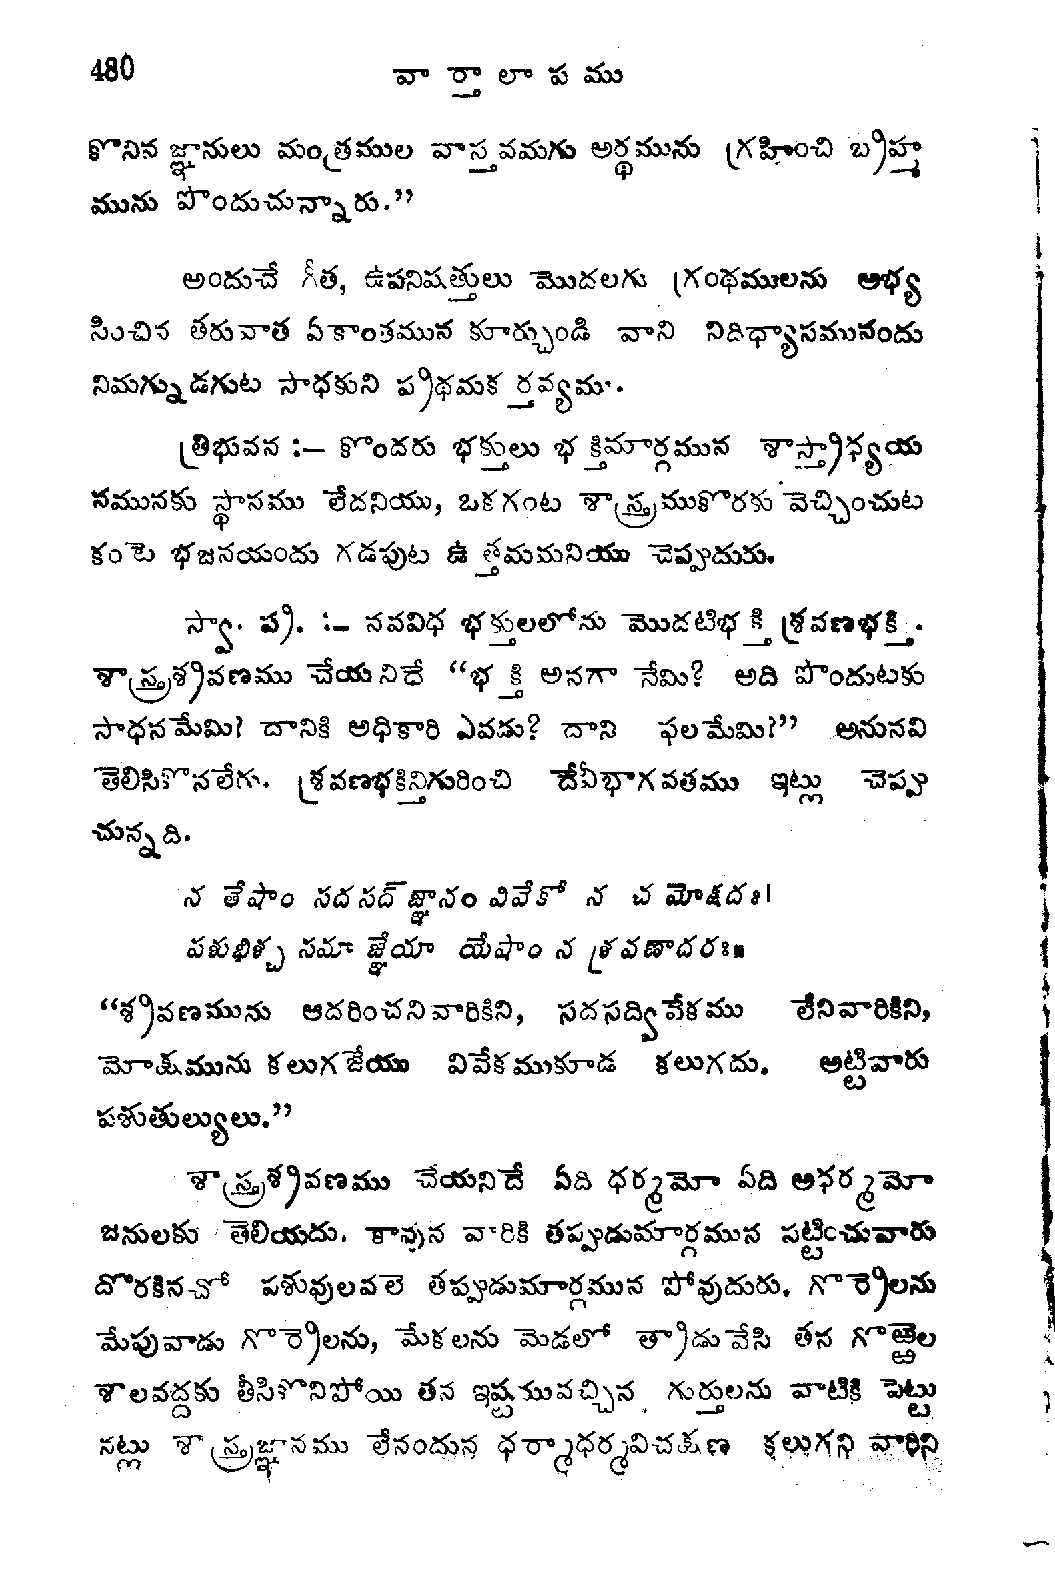 480
వార్తాలాపము
కొనిన జ్ఞానులు మంత్రముల వాస్తవమగు అర్థమును గ్రహించి బ్రహ్మ
మును పొందుచున్నారు.”
అందుచే గీత, ఉపనిషత్తులు మొదలగు గ్రంథములను అభ్య
సించిన తరువాత ఏకాంతమున కూర్చుండి వాని నిదిధ్యాసమునందు
నిమగ్నుడగుట సాధకుని ప్రథమకర్తవ్యము.
త్రిభువన :— కొందరు భక్తులు భక్తిమార్గమున శాస్త్రాధ్యయ
నమునకు స్థానము లేదనియు, ఒకగంట శాస్త్రముకొరకు వెచ్చించుట
కంటె భజనయందు గడపుట ఉత్తమమనియు చెప్పుదురు.
స్వా. ప్ర. :— నవవిధ భక్తులలోను మొదటిభక్తి శ్రవణభక్తి.
శాస్త్రశ్రవణము చేయనిదే “భక్తి అనగా నేమి? అది పొందుటకు
సాధనమేమి? దానికి అధికారి ఎవడు? దాని ఫలమేమి?” అనునవి
తెలిసికొనలేగు. శ్రవణభక్తినిగురించి దేవీభాగవతము ఇట్లు చెప్పు
చున్నది.
న తేషాం సదసద్ జ్ఞానం వివేకో న చ మోక్షదః।
పశుభిశ్చ సమా జ్ఞేయా యేషాం న శ్రవణాదరః॥
“శ్రవణమును ఆదరించనివారికిని, సదసద్వివేకము లేనివారికిని,
మోక్షమును కలుగజేయు వివేకముకూడ కలుగదు. అట్టివారు
పశుతుల్యులు.”
శాస్త్రశ్రవణము చేయనిదే ఏది ధర్మమో ఏది అధర్మమో
జనులకు తెలియదు. కావున వారికి తప్పుడుమార్గమున పట్టించువారు
దొరకినచో పశువులవలె తప్పుడుమార్గమున పోవుదురు. గొర్రెలను
మేపువాడు గొర్రెలను, మేకలను మెడలో త్రాడువేసి తన గొఱ్ఱెల
శాలవద్దకు తీసికొనిపోయి తన ఇష్టమువచ్చిన గుర్తులను వాటికి పెట్టు
నట్లు శాస్త్రజ్ఞానము లేనందున ధర్మాధర్మవిచక్షణ కలుగని వారిని